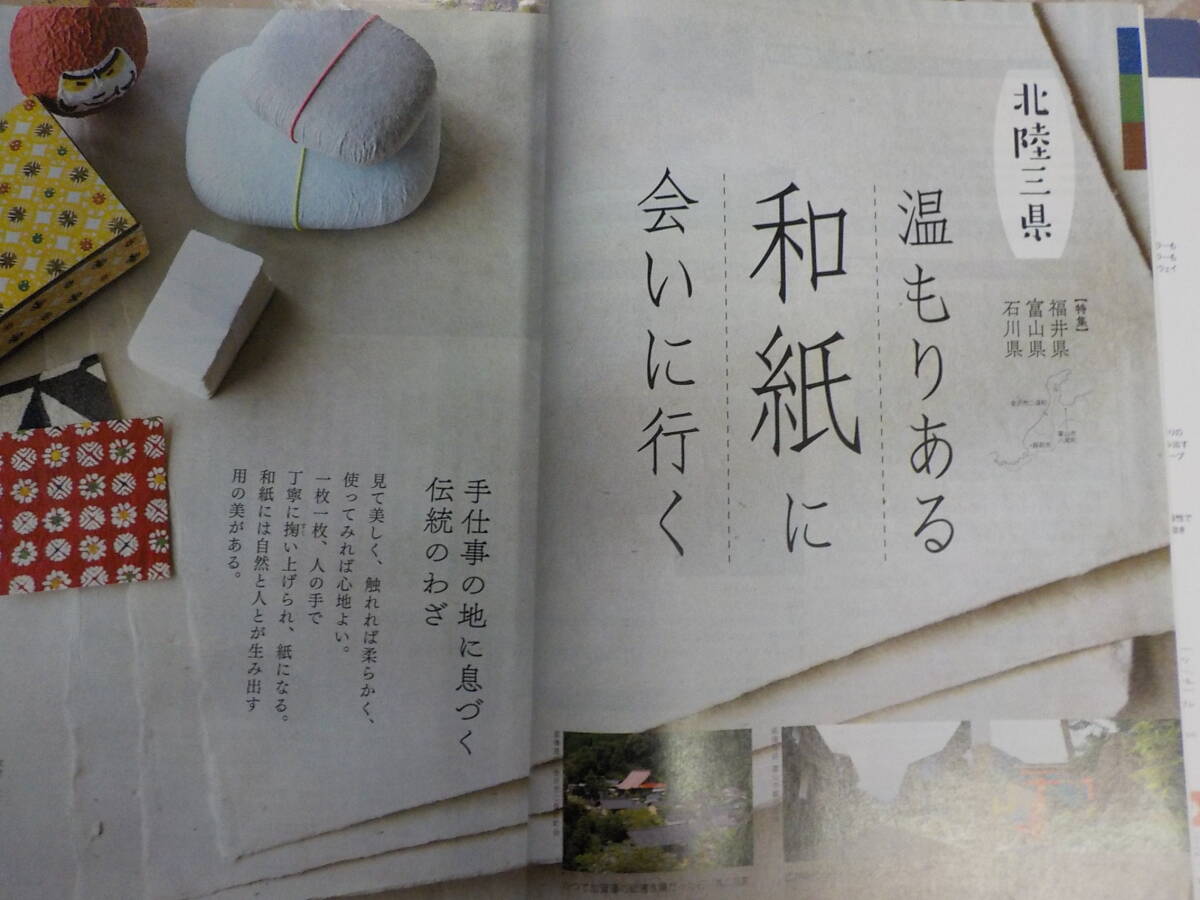 北陸三県
【特集】
福井県
富山県
石川県
温もりある
和紙に
会いに行く
手仕事の地に息づく
伝統のわざ
見て美しく、触れれば柔らかく、
使ってみれば心地よい。
一枚一枚、人の手で
丁寧に掬い上げられ、紙になる。
和紙には自然と人とが生み出す
用の美がある。